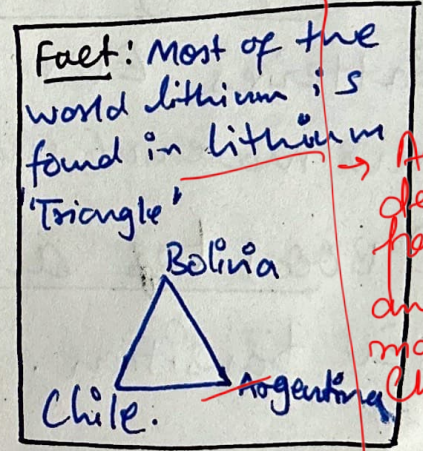 Fact: Most of the
world lithium is
found in lithium
'Triangle'
Bolivia
Chile.
Argentina